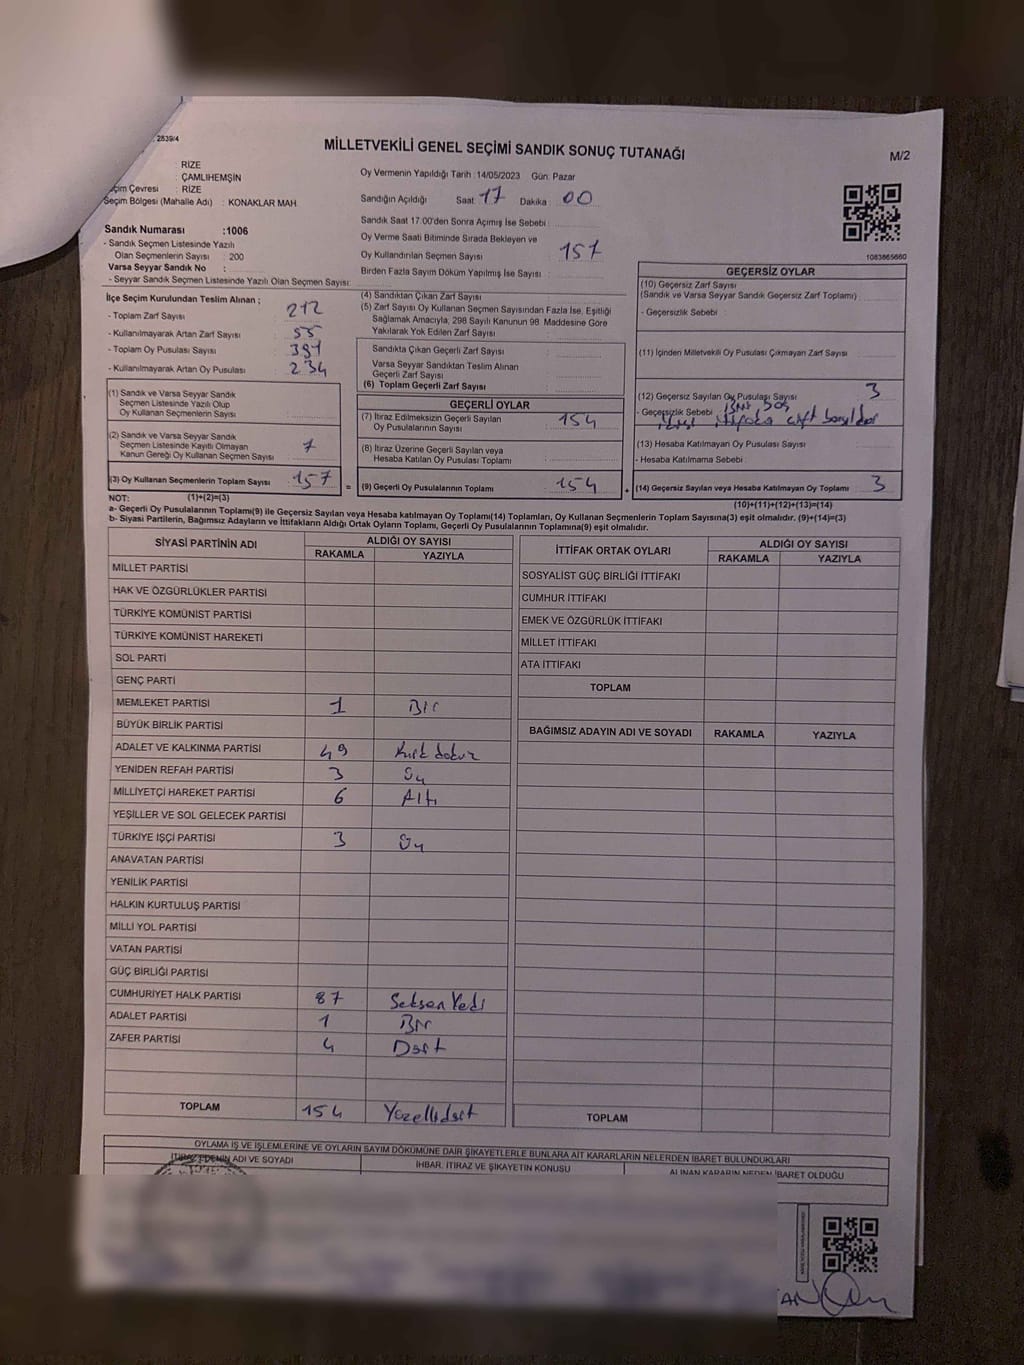 2839/4
MİLLETVEKİLİ GENEL SEÇİMİ SANDIK SONUÇ TUTANAĞI
M/2
: RİZE
: ÇAMLIHEMŞİN
Seçim Çevresi : RİZE
Seçim Bölgesi (Mahalle Adı) : KONAKLAR MAH
Sandık Numarası :1006
- Sandık Seçmen Listesinde Yazılı
Olan Seçmenlerin Sayısı : 200
Varsa Seyyar Sandık No :
- Seyyar Sandık Seçmen Listesinde Yazılı Olan Seçmen Sayısı:
Oy Vermenin Yapıldığı Tarih :14/05/2023 Gün: Pazar
Sandığın Açıldığı Saat: 17 Dakika 00
Sandık Saat 17.00'den Sonra Açımış İse Sebebi :
Oy Verme Saati Bitiminde Sırada Bekleyen ve
Oy Kullandırılan Seçmen Sayısı : 157
Birden Fazla Sayım Döküm Yapılmış İse Sayısı :
1083865660
İlçe Seçim Kurulundan Teslim Alınan ;
- Toplam Zarf Sayısı : 212
- Kullanılmayarak Artan Zarf Sayısı : 55
- Toplam Oy Pusulası Sayısı : 391
- Kullanılmayarak Artan Oy Pusulası : 234
(1) Sandık ve Varsa Seyyar Sandık
Seçmen Listesinde Yazılı Olup
Oy Kullanan Seçmenlerin Sayısı :
(2) Sandık ve Varsa Seyyar Sandık
Seçmen Listesinde Kayıtlı Olmayan
Kanun Gereği Oy Kullanan Seçmen Sayısı : 7
(3) Oy Kullanan Seçmenlerin Toplam Sayısı : 157
(4) Sandıktan Çıkan Zarf Sayısı :
(5) Zarf Sayısı Oy Kullanan Seçmen Sayısından Fazla İse, Eşitliği
Sağlamak Amacıyla, 298 Sayılı Kanunun 98. Maddesine Göre
Yakılarak Yok Edilen Zarf Sayısı :
Sandıkta Çıkan Geçerli Zarf Sayısı :
Varsa Seyyar Sandıktan Teslim Alınan
Geçerli Zarf Sayısı :
(6) Toplam Geçerli Zarf Sayısı :
GEÇERLİ OYLAR
(7) İtiraz Edilmeksizin Geçerli Sayılan
Oy Pusulalarının Sayısı : 154
(8) İtiraz Üzerine Geçerli Sayılan veya
Hesaba Katılan Oy Pusulası Toplamı :
(9) Geçerli Oy Pusulalarının Toplamı : 154
GEÇERSİZ OYLAR
(10) Geçersiz Zarf Sayısı
(Sandık ve Varsa Seyyar Sandık Geçersiz Zarf Toplamı) :
- Geçersizlik Sebebi :
(11) İçinden Milletvekili Oy Pusulası Çıkmayan Zarf Sayısı :
(12) Geçersiz Sayılan Oy Pusulası Sayısı : 3
- Geçersizlik Sebebi
(13) Hesaba Katılmayan Oy Pusulası Sayısı :
- Hesaba Katılmama Sebebi :
(14) Geçersiz Sayılan veya Hesaba Katılmayan Oy Toplamı : 3
NOT: (1)+(2)=(3)
(10)+(11)+(12)+(13)=(14)
a- Geçerli Oy Pusulalarının Toplamı(9) ile Geçersiz Sayılan veya Hesaba katılmayan Oy Toplamı(14) Toplamları, Oy Kullanan Seçmenlerin Toplam Sayısına(3) eşit olmalıdır. (9)+(14)=(3)
b- Siyasi Partilerin, Bağımsız Adayların ve İttifakların Aldığı Ortak Oyların Toplamı, Geçerli Oy Pusulalarının Toplamına(9) eşit olmalıdır.
SİYASİ PARTİNİN ADI ALDIĞI OY SAYISI
RAKAMLA YAZIYLA
MİLLET PARTİSİ
HAK VE ÖZGÜRLÜKLER PARTİSİ
TÜRKİYE KOMÜNİST PARTİSİ
TÜRKİYE KOMÜNİST HAREKETİ
SOL PARTİ
GENÇ PARTİ
MEMLEKET PARTİSİ 1 Bir
BÜYÜK BİRLİK PARTİSİ
ADALET VE KALKINMA PARTİSİ 49 Kırk dokuz
YENİDEN REFAH PARTİSİ 3 Üç
MİLLİYETÇİ HAREKET PARTİSİ 6 Altı
YEŞİLLER VE SOL GELECEK PARTİSİ
TÜRKİYE İŞÇİ PARTİSİ 3 Üç
ANAVATAN PARTİSİ
YENİLİK PARTİSİ
HALKIN KURTULUŞ PARTİSİ
MİLLİ YOL PARTİSİ
VATAN PARTİSİ
GÜÇ BİRLİĞİ PARTİSİ
CUMHURİYET HALK PARTİSİ 87 Seksen Yedi
ADALET PARTİSİ 1 Bir
ZAFER PARTİSİ 4 Dört
TOPLAM 154 Yüzellidört
İTTİFAK ORTAK OYLARI ALDIĞI OY SAYISI
RAKAMLA YAZIYLA
SOSYALİST GÜÇ BİRLİĞİ İTTİFAKI
CUMHUR İTTİFAKI
EMEK VE ÖZGÜRLÜK İTTİFAKI
MİLLET İTTİFAKI
ATA İTTİFAKI
TOPLAM
BAĞIMSIZ ADAYIN ADI VE SOYADI RAKAMLA YAZIYLA
TOPLAM
OYLAMA İŞ VE İŞLEMLERİNE VE OYLARIN SAYIM DÖKÜMÜNE DAİR ŞİKAYETLERLE BUNLARA AİT KARARLARIN NELERDEN İBARET BULUNDUKLARI
İTİRAZ EDENİN ADI VE SOYADI İHBAR, İTİRAZ VE ŞİKAYETİN KONUSU ALINAN KARARIN NEDEN İBARET OLDUĞU